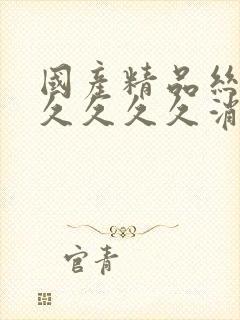 國產精品絲
久久久久消
官青